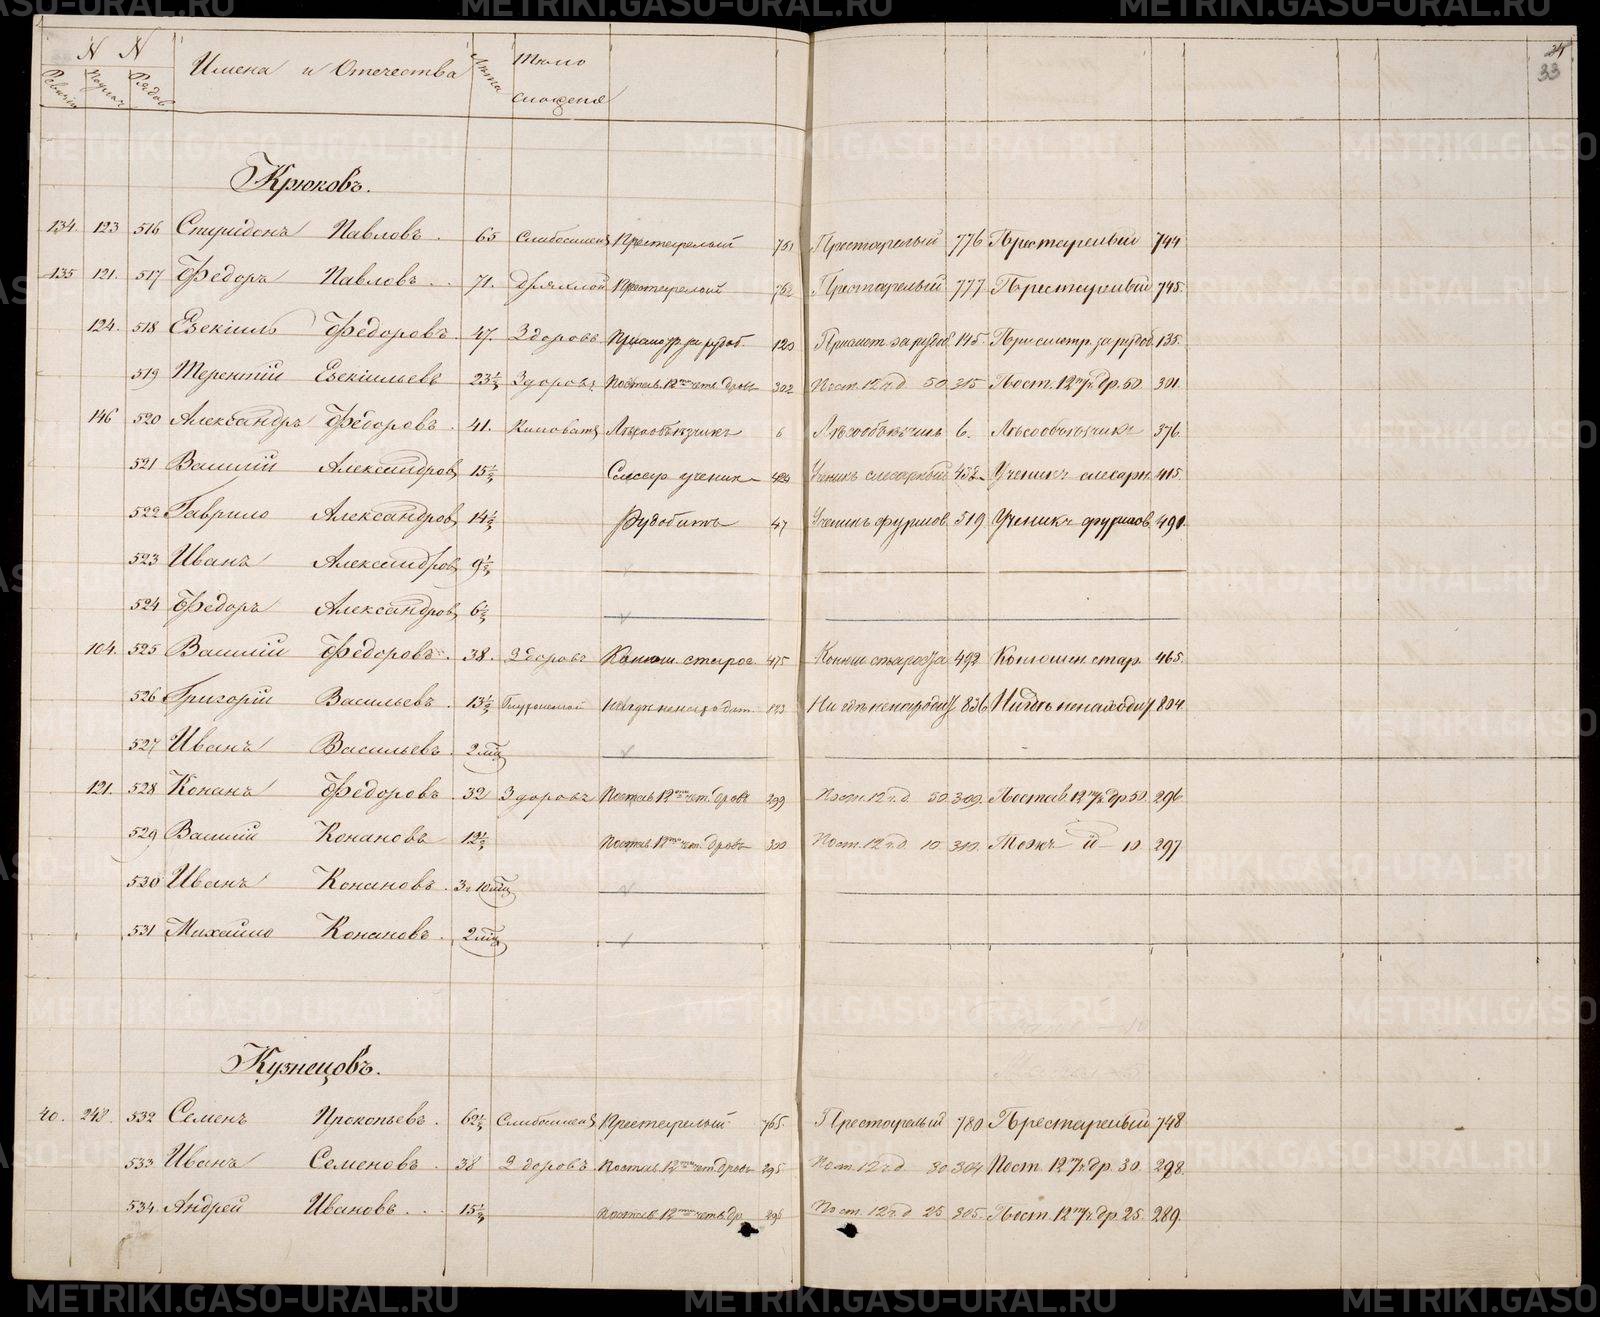 N N
Ревизск Подушн Рядов Имена и Отечества Лета Тело
сложеніе
33
Крюковъ.
134. 123 516 Спиридонъ Павловъ . 65 Слабосилен Престарелый 751 Престарелый 776 Престарелый 744
135 121. 517 Федоръ Павловъ . . 71. Дряхлой Престарелый 762 Престарелый 777 Престарелый 745.
124. 518 Езекіиль Федоровъ. 47. Здоровъ Присмотр. за рудоб. 120 Присмот. за рудоб. 145. Присмотр. за рудоб 135.
519 Терентій Езекіильевъ 23½ Здоровъ Постав. 12 четв. дровъ 302 Пост. 12 ч. д 50 315 Пост. 12 ч. др. 50. 301.
146 520 Александръ Федоровъ . 41. Киловатъ Лесообъездчикъ 6 Лесообъездчикъ 6. Лесообъездчикъ 376.
521 Василій Александров 15½ Слесар ученик 424 Ученикъ слесарный 432. Ученикъ слесарн. 415.
522 Гаврило Александров 14½ Рудобитъ 47 Ученикъ формов. 519 Ученикъ формов. 490.
523 Иванъ Александров 9½
524 Федоръ Александров 6½
104. 525 Василій Федоровъ . 38. Здоровъ Конюш. старос. 475 Конюш староста 492 Конюшен. стар. 465.
526 Григорій Васильевъ . 13½ Глухонемой Нигде ненаходит. 143 Ни где ненаходит 836 Нигде ненаходит 804.
527 Иванъ Васильевъ . 2 мц
121. 528 Конанъ Федоровъ . 32 Здоровъ Постав. 12 чет. дровъ 299 Пост. 12 ч. д. 50. 309. Постав. 12 ч. др. 50. 296
529 Василій Конановъ 12½ Постав. 12 чет. дровъ 300 Пост. 12 ч. д 10 310. Тожъ й 10 297
530 Иванъ Конановъ . 3 г 10 мц
531 Михаило Конановъ . 2 мц
Кузнецовъ.
40. 248. 532 Семенъ Прокопьевъ . 62½ Слабосилен Престарелый 765. Престарелый 780 Престарелый 748
533 Иванъ Семеновъ . 38 Здоровъ Постав. 12 чет. дровъ 295 Пост. 12 ч. д 30 304 Пост. 12 ч. др. 30. 288.
534. Андрей Ивановъ . . . 15½ Постав. 12 четв. др 296 Пост. 12 ч. д 25 305. Пост. 12 ч. др. 25. 289.
METRIKI.GASO-URAL.RU